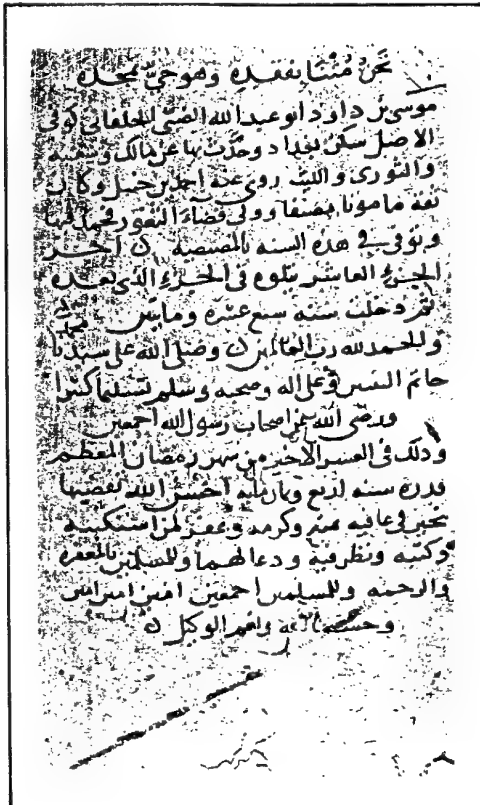 نَحْنُ مُتْنَا بفقده وهو حيّ بمجده
موسى بن داود ابو عبد الله الضبى الخلقانى كوفى
الاصل سكن بغداد وحدّث بها عن مالك وشعبة
والثورى والليث روى عنه احمد بن حنبل وكان
ثقة مامونا مصنفا وولى قضاء الثغور فحمد فيها
وتوفى في هذه السنه بالمصيصه آخر
الجزء العاشر يتلوه فى الجزء الذى بعده
ثم دخلت سنة سبع عشرة ومايتين
والحمد لله رب العالمين وصلى الله على سيدنا محمد
خاتم النبيين وعلى اله وصحبه وسلم تسليما كثيرا
ورضى الله عن اصحاب رسول الله اجمعين
وذلك فى العشر الاخير من شهر رمضان المعظم
قدره سنه اربع وثمان مائه احسن الله تقضيها
بخير فى عافيه بمنه وكرمه وغفر لمن استكتبه
وكتبه ونظر فيه ودعا لهما وللمسلمين بالمغفره
والرحمه وللمسلمين اجمعين امين امين امين
وحسبنا الله ونعم الوكيل